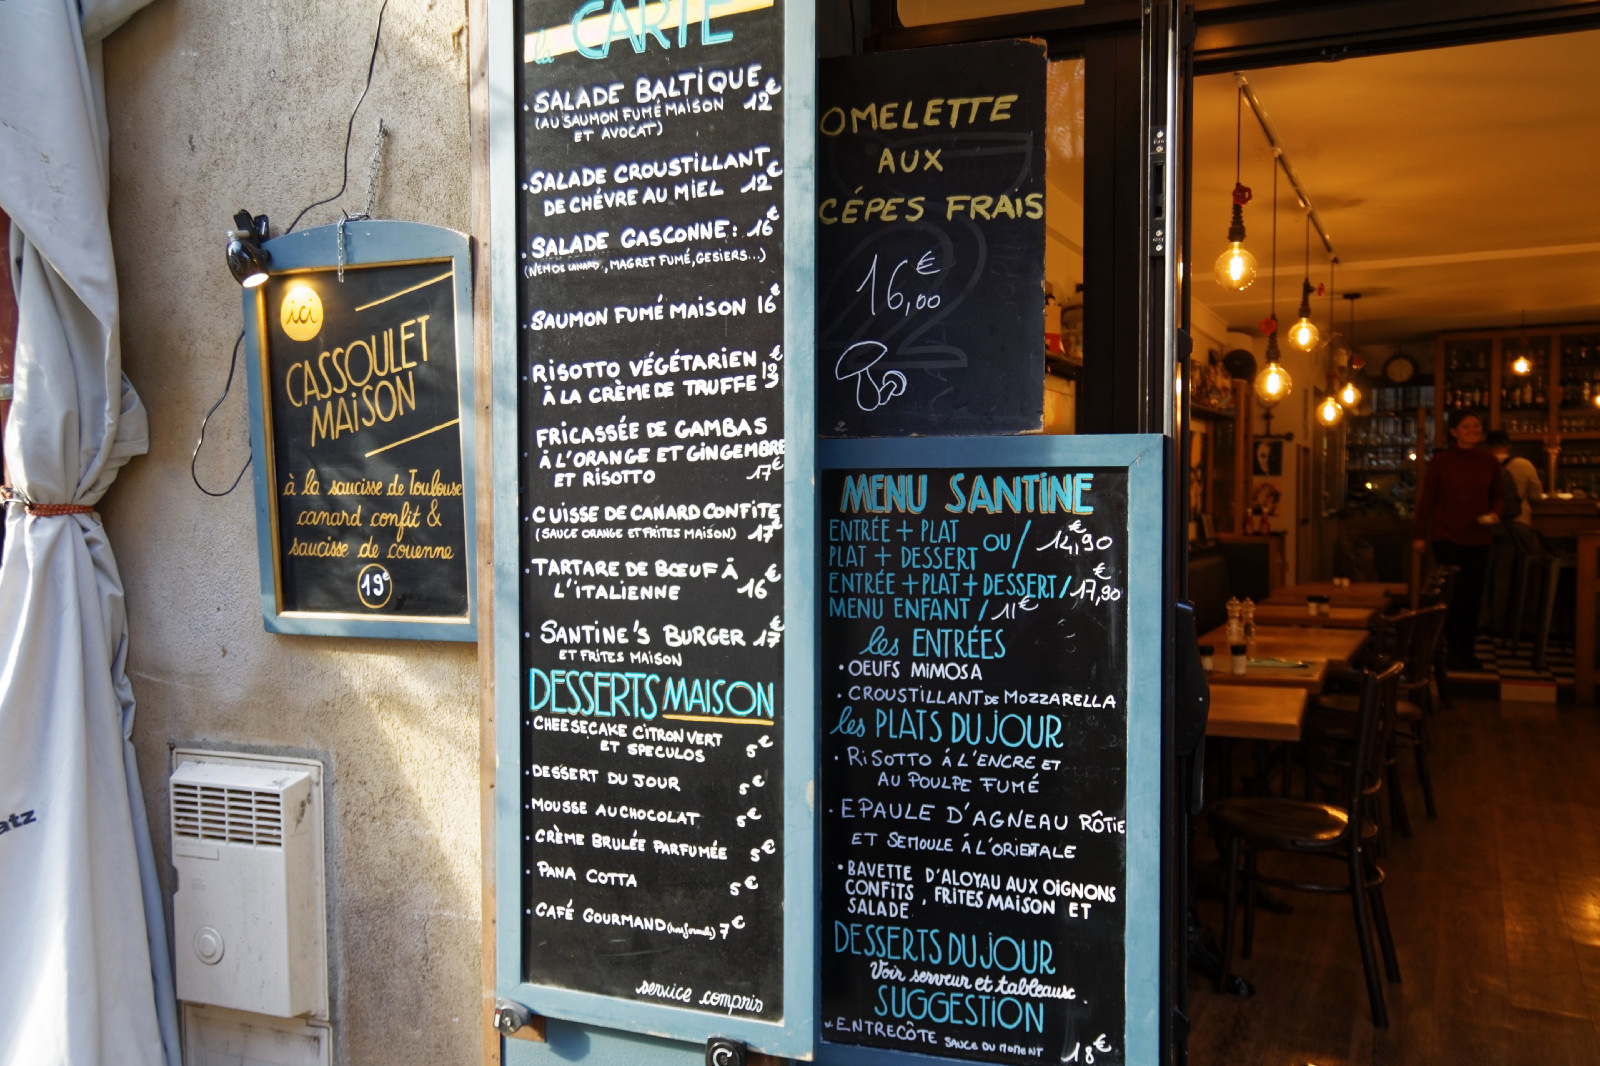 atz
ici
CASSOULET
MAiSON
à la saucisse de Toulouse
canard confit &
saucisse de couenne
19€
la CARTE
• SALADE BALTiQUE 12€
(AU SAUMON FUMÉ MAISON
ET AVOCAT)
• SALADE CROUSTILLANT
DE CHÉVRE AU MIEL 12€
• SALADE GASCONNE: 16€
(NEM DE CANARD, MAGRET FUMÉ, GESIERS...)
• SAUMON FUMÉ MAISON 16€
• RISOTTO VÉGÉTARIEN
À LA CRÈME DE TRUFFE 13€
FRICASSÉE DE GAMBAS
À L'ORANGE ET GINGEMBRE
ET RISOTTO 17€
• CUISSE DE CANARD CONFITE
(SAUCE ORANGE ET FRITES MAISON) 17€
• TARTARE DE BŒUF À
L'ITALIENNE 16€
• SANTINE'S BURGER 17€
ET FRITES MAISON
DESSERTS MAISON
• CHEESECAKE CITRON VERT
ET SPECULOS 5€
• DESSERT DU JOUR 5€
• MOUSSE AU CHOCOLAT 5€
• CRÈME BRULÉE PARFUMÉE 5€
• PANA COTTA 5€
• CAFÉ GOURMAND (hors formule) 7€
service compris
OMELETTE
AUX
CÉPES FRAIS
16,00€
MENU SANTINE
ENTRÉE + PLAT OU / 14,90€
PLAT + DESSERT
ENTRÉE + PLAT + DESSERT / 17,90€
MENU ENFANT / 11€
les ENTRÉES
• OEUFS MiMOSA
• CROUSTILLANT DE MOZZARELLA
les PLATS DU JOUR
• RiSOTTO À L'ENCRE ET
AU POULPE FUMÉ
• EPAULE D'AGNEAU RÔTIE
ET SEMOULE À L'ORIENTALE
• BAVETTE D'ALOYAU AUX OIGNONS
CONFITS, FRITES MAISON ET
SALADE
DESSERTS DU JOUR
Voir serveur et tableaux.
SUGGESTION
ENTRECÔTE SAUCE DU MOMENT 18€